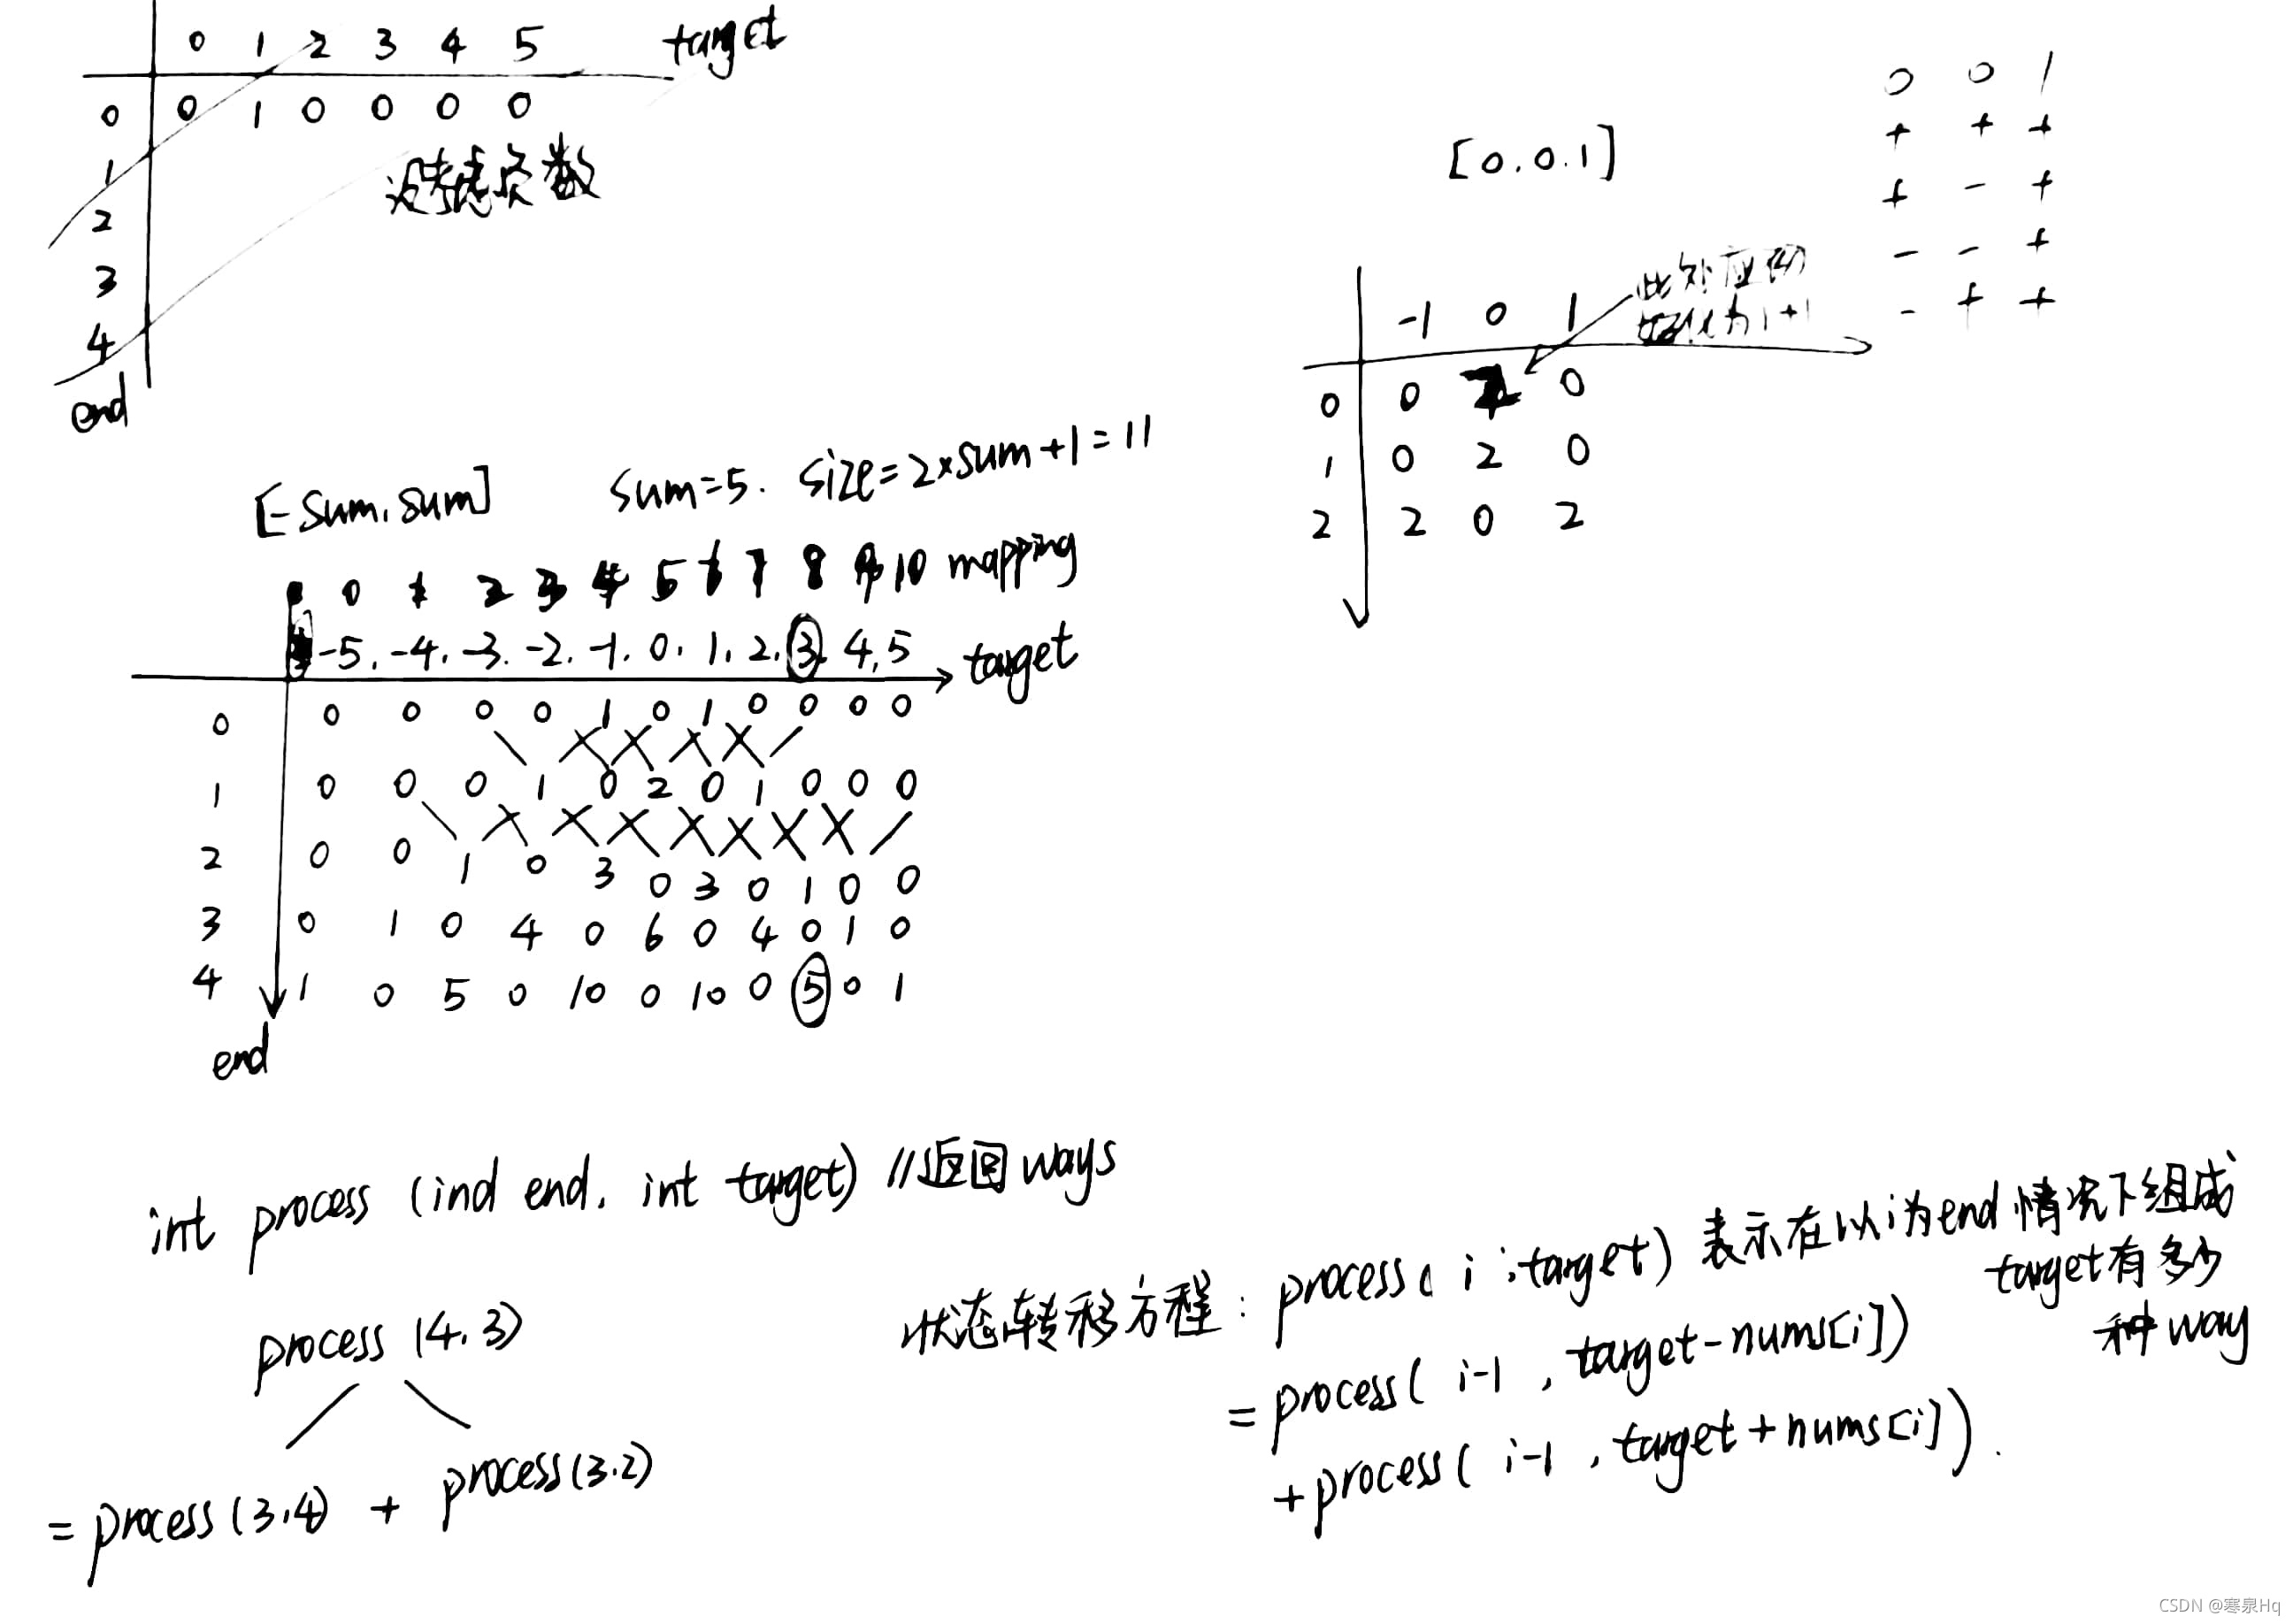 0 1 2 3 4 5 target
0 0 1 0 0 0 0
1
2
3
4
end
没考虑负数
0 0 1
+ + +
+ - +
- - +
- + +
[0.0.1]
此处应初
始化为1+1
-1 0 1
0 0 2 0
1 0 2 0
2 2 0 2
[-sum,sum] sum=5. size=2×sum+1=11
0 1 2 3 4 5 6 7 8 9 10 mapping
-5. -4. -3. -2. -1. 0. 1. 2. 3. 4, 5 target
0 0 0 0 0 1 0 1 0 0 0 0
1 0 0 0 1 0 2 0 1 0 0 0
2 0 0 1 0 3 0 3 0 1 0 0
3 0 1 0 4 0 6 0 4 0 1 0
4 1 0 5 0 10 0 10 0 5 0 1
end
int process (ind end. int target) //返回ways
process (4.3)
= process(3.4) + process(3.2)
状态转移方程: process( i ,target) 表示在以i为end情况下组成
target有多少
种way
= process( i-1 , target-nums[i])
+process( i-1 , target+nums[i]).
CSDN @寒泉Hq